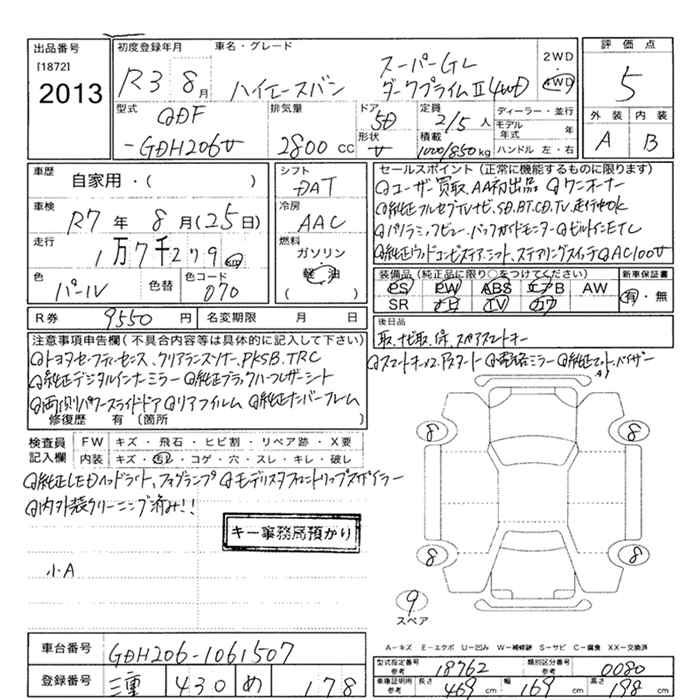 出品番号 [1872] 2013
初度登録年月 R3 8月
車名・グレード ハイエースバン スーパーGL ダークプライムⅡ 4WD
2WD・4WD
評価点 5
外装 A 内装 B
型式 QDF-GDH206V
排気量 2800 CC
ドア形状 5D V
定員 2/5人
積載 1000/850kg
ディーラー・並行
モデル年式 年
ハンドル 左・右
車歴 自家用・( )
車検 R7年8月(25日)
走行 1万7千279km
色 パール 色替 色コード 070
シフト DAT
冷房 AAC
燃料 ガソリン 軽油 ( )
セールスポイント(正常に機能するものに限ります)
◎ユーザー買取、AA初出品 ◎ワンオーナー
◎純正フルセグTVナビ、SD.BT.CD.TV.走行中ok
◎パノラミックビュー、バックガイドモニター ◎ビルトインETC
◎純正ウッドコンビステア、シフト、ステアリングスイッチ ◎AC100V
装備品(純正品に限り○をつけてください) 新車保証書
PS PW ABS エアB AW 有・無
SR ナビ TV カワ
R券 9550円 名変期限 月 日
後日品
取、ナビ取、保、スペアスマートキー
注意事項申告欄(不具合内容等は具体的に記入して下さい)
◎スマートキー×2、Pスタート
◎純正マット、バイザー
◎トヨタセーフティセンス、クリアランスソナー、PKSB.TRC
◎純正デジタルインナーミラー ◎純正ブラックハーフレザーシート
◎両側パワースライドドア ◎リアフィルム ◎純正ナンバーフレーム
修復歴 有 〔箇所 〕
検査員記入欄
FW キズ・飛石・ヒビ割・リペア跡・X要
内装 キズ・汚れ・コゲ・穴・スレ・キレ・破レ
◎純正LEDヘッドライト、フォグランプ ◎モデリスタフロントリップスポイラー
◎内外装クリーニング済み!!
キー事務局預かり
小A
8
8
8
8
9
スペア
A−キズ E−エクボ U−凹み W−補修跡 S−サビ C−腐食 XX−交換済
車台番号 GDH206-1061507
登録番号 三重 430 め 178
型式指定番号 参考 18762 類別区分番号 参考 0080
車庫証明用 参考 長さ 469cm 幅 169cm 高さ 198cm